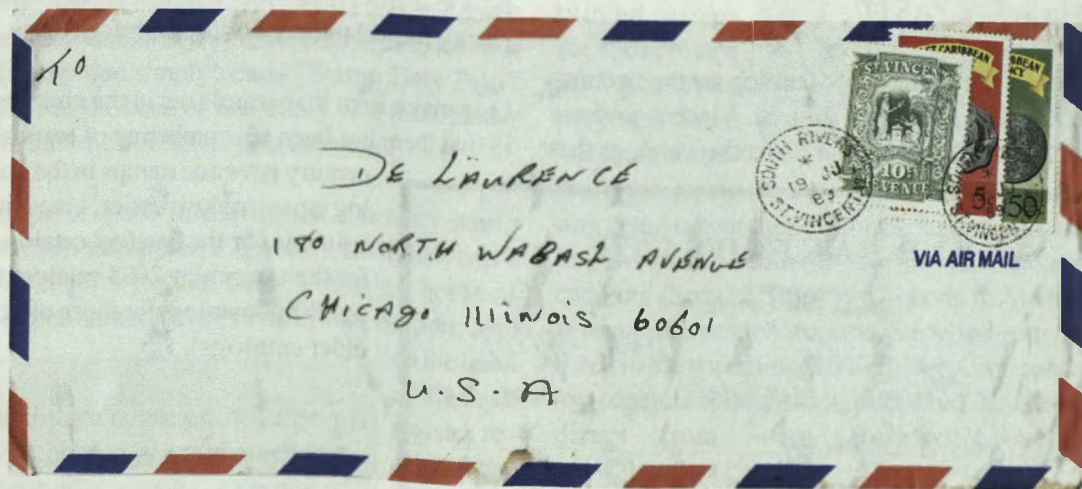 TO
DE LAURENCE
170 NORTH WABASH AVENUE
CHICAGO ILLINOIS 60601
U.S.A
ST VINCENT
10c
REVENUE
CARIBBEAN
5c
50c
SOUTH RIVERS
19 JU
89
ST. VINCENT
VIA AIR MAIL